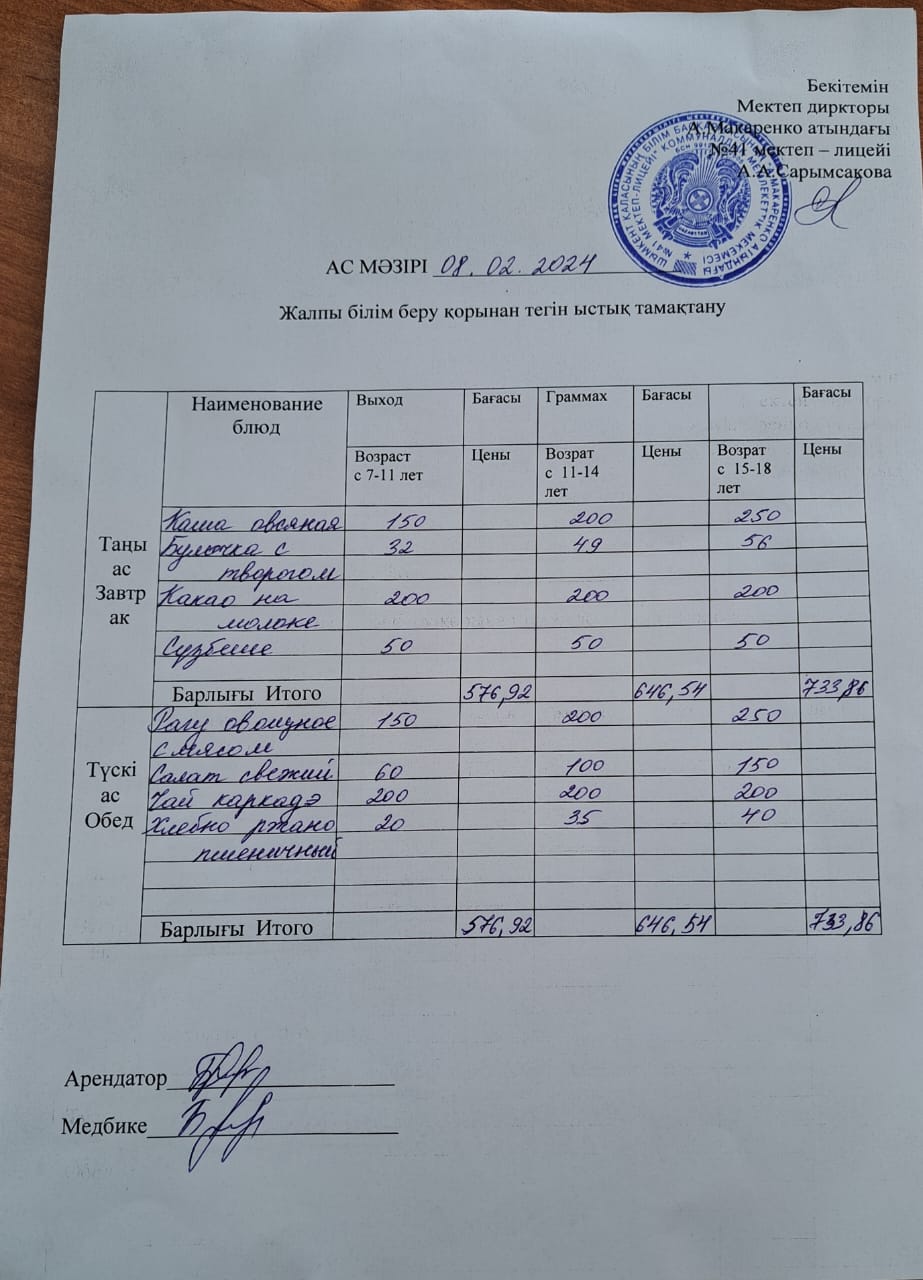 Бекітемін
Мектеп диркторы
А.Макаренко атындағы
№41 мектеп – лицейі
А.А.Сарымсақова
АС МӘЗІРІ 08.02.2024
Жалпы білім беру қорынан тегін ыстық тамақтану
Наименование блюд Выход Бағасы Граммах Бағасы Бағасы
Возраст с 7-11 лет Цены Возрат с 11-14 лет Цены Возрат с 15-18 лет Цены
Таңы ас Завтрак
Каша овсяная 150 200 250
Булочка с 32 49 56
творогом
Какао на 200 200 200
молоке
Сузбеше 50 50 50
Барлығы Итого 576,92 646,54 733,86
Түскі ас Обед
Рагу овощное 150 200 250
с мясом
Салат свежий 60 100 150
Чай каркадэ 200 200 200
Хлебно ржано 20 35 40
пшеничный
Барлығы Итого 576,92 646,54 733,86
Арендатор
Медбике